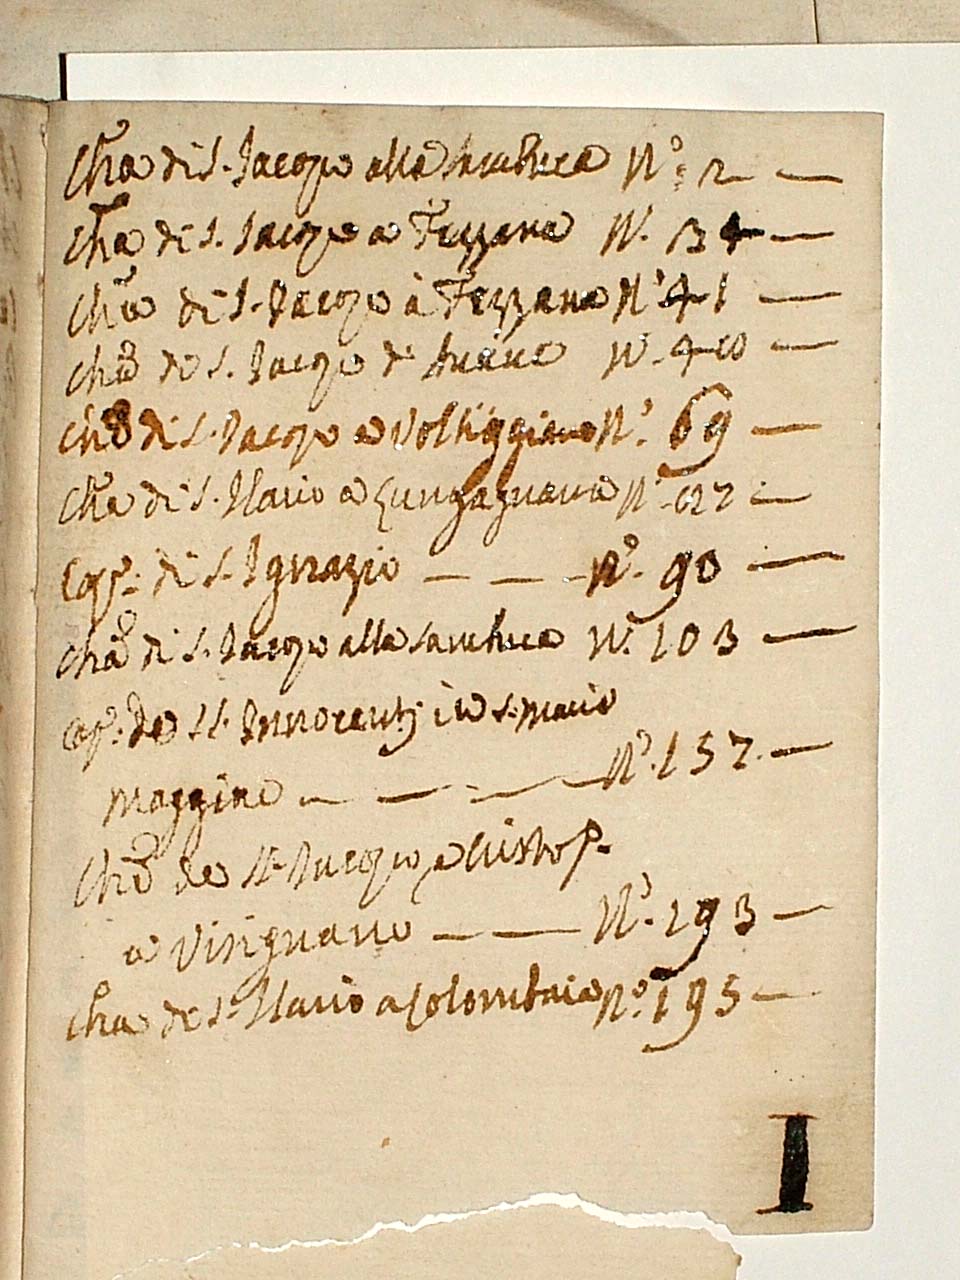 Cha di S. Jacopo alla Sambuca N.o 2 —
Cha di S. Jacopo a Fezzana N. 34 —
Cha di S. Jacopo à Fezzana N.o 41 —
Cha di S. Jacopo di N. 40 —
Cha di S. Jacopo a Voltiggiano N.o 69 —
Cha di S. Ilario a Lungagnana N.o —
Capp.: di S. Ignazio — — — N.o 90 —
Cha di S. Jacopo alla Sambuca N. 103 —
Cap.: de SS. Innocentj in S. Maria
Maggiore — — — — N.o 157. —
Cha de SS. Jacopo, e Cristof.
a Virignano — — N.o 193 —
Cha di S. Ilario a Colombaia N.o 195 —
I